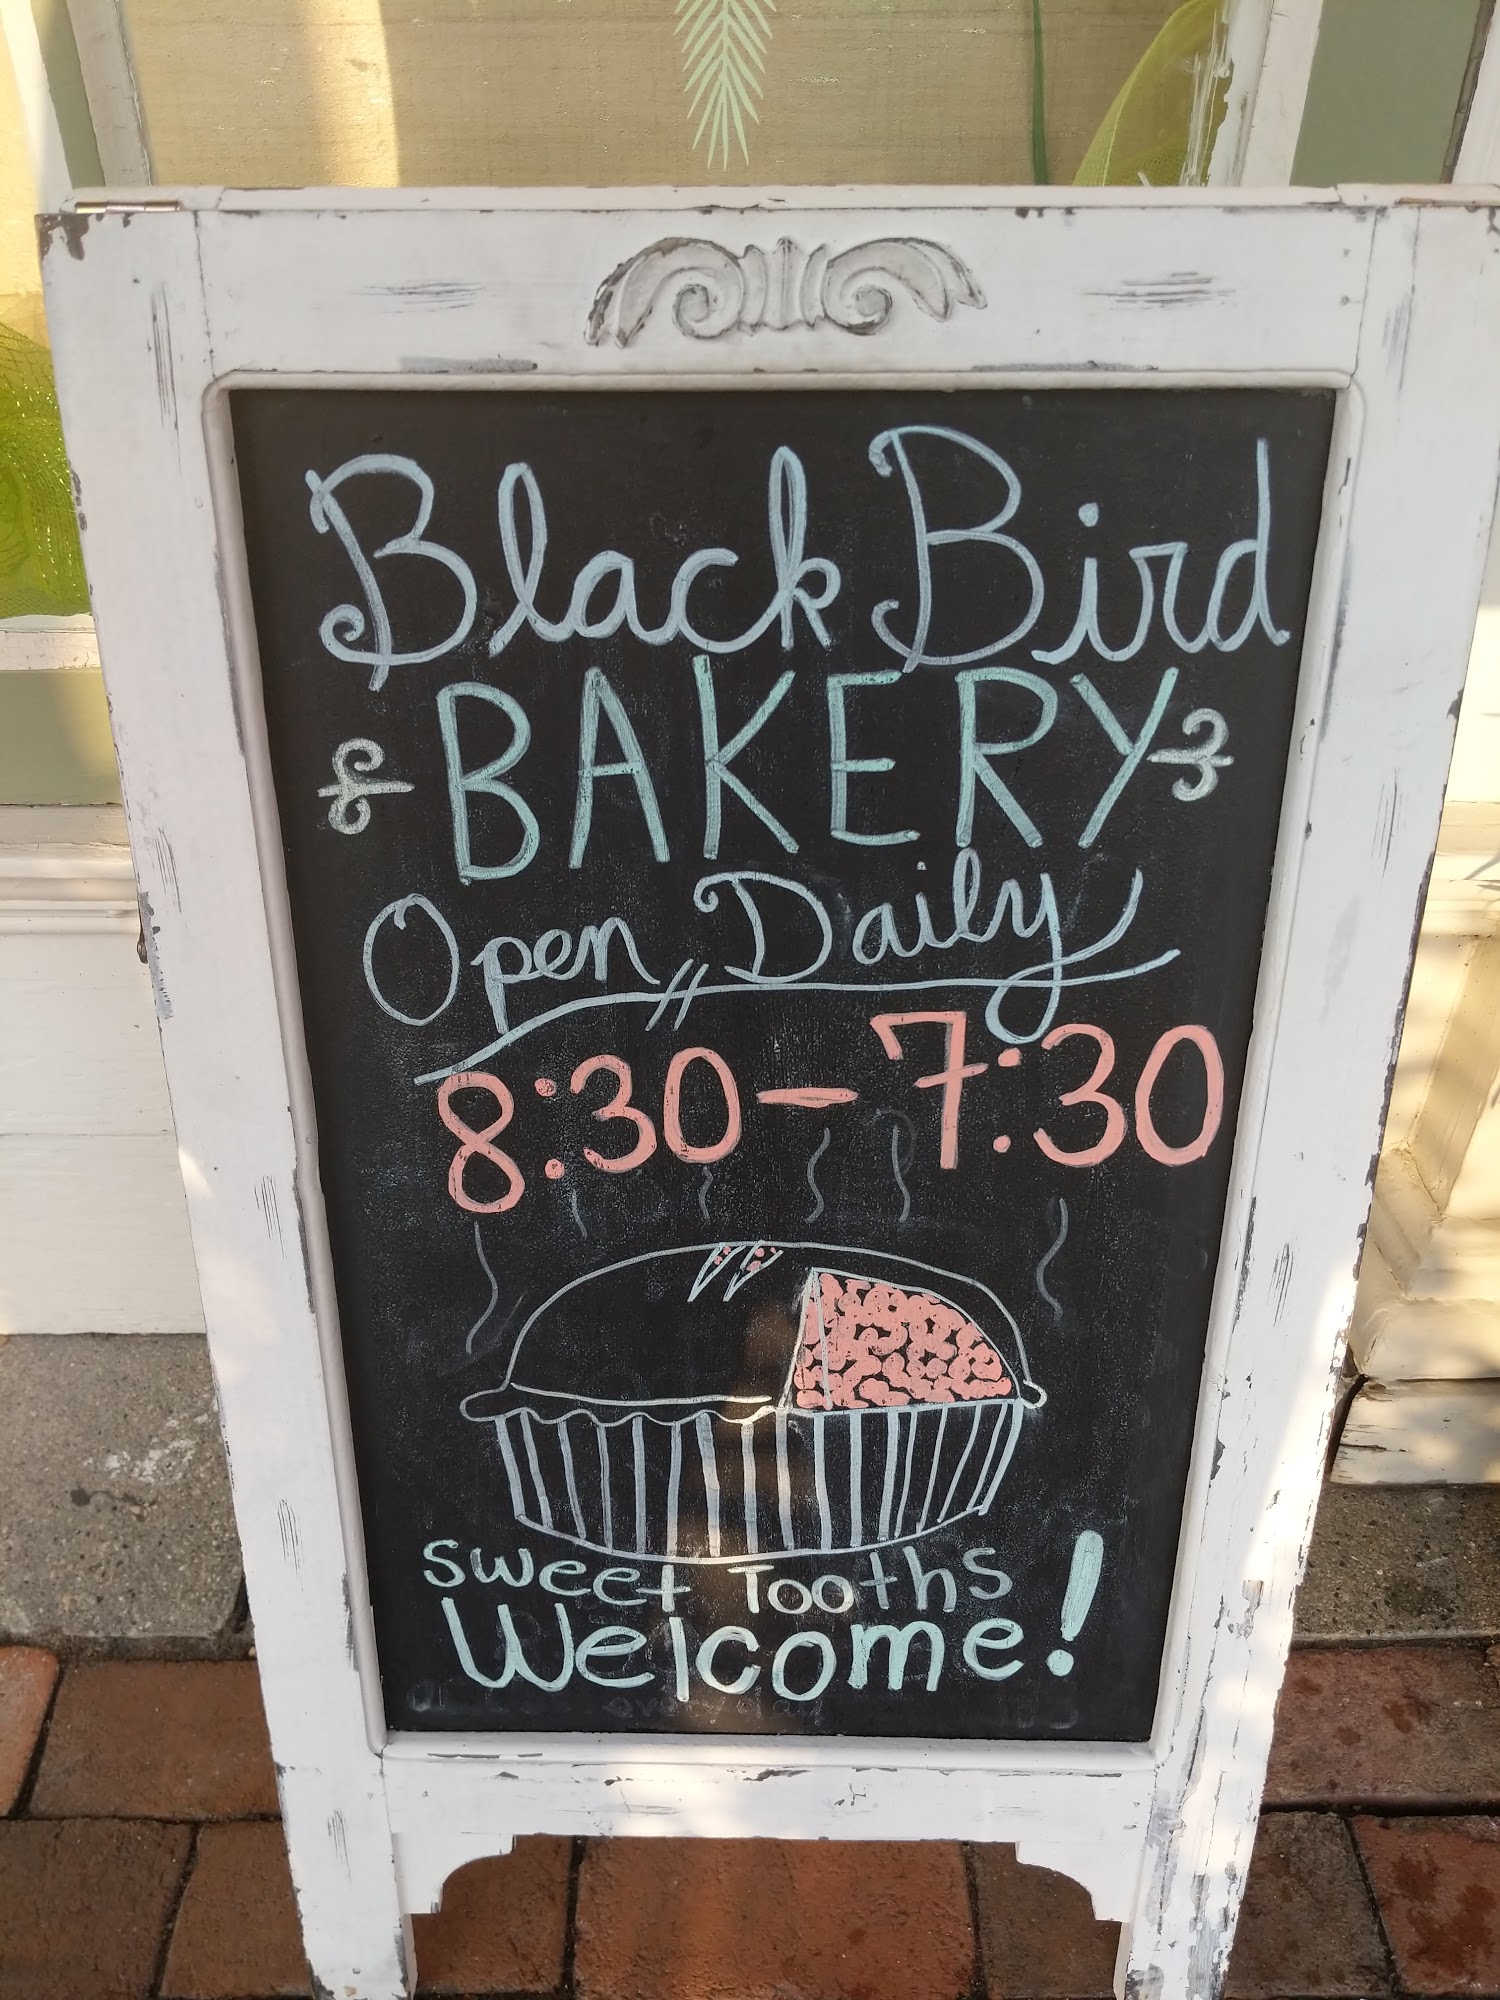 Black Bird
BAKERY
Open Daily
8:30-7:30
sweet Tooths
Welcome!